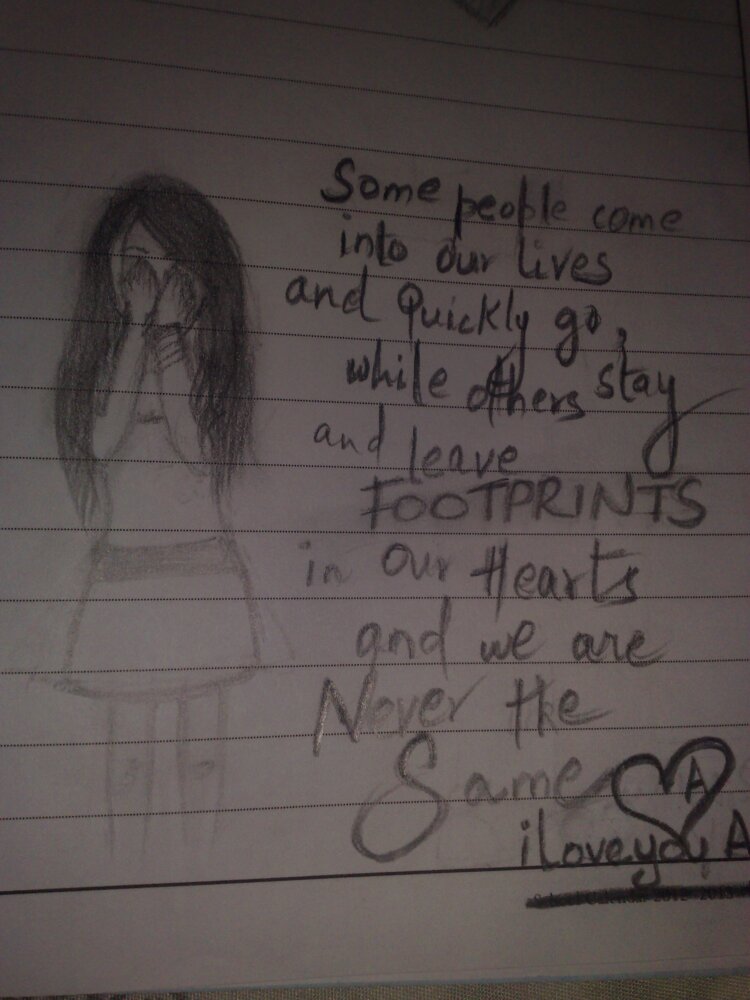 Some people come
into our lives
and Quickly go,
while others stay
and leave
FOOTPRINTS
in our Hearts
and we are
Never the
Same
A
iloveyou A